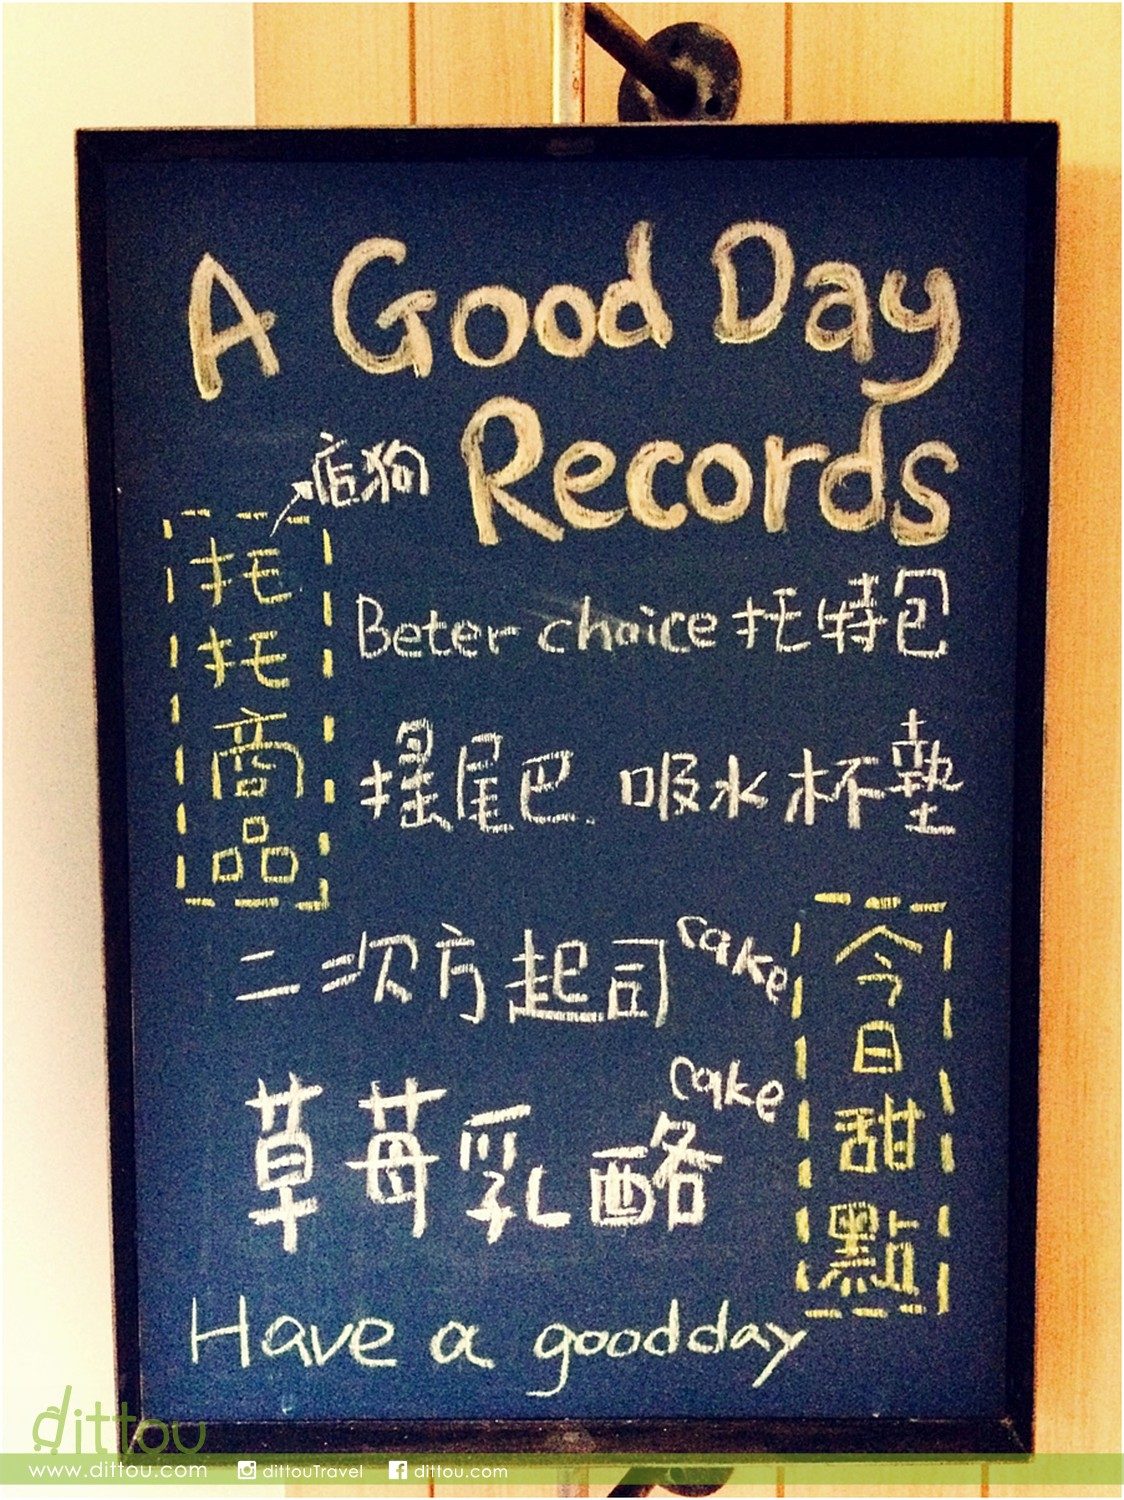 A Good Day
Records
店狗
托托商品
Beter choice 托特包
搖尾巴 吸水杯墊
二次方起司 cake
草莓乳酪 cake
今日甜點
Have a good day
dittou
www.dittou.com dittouTravel dittou.com